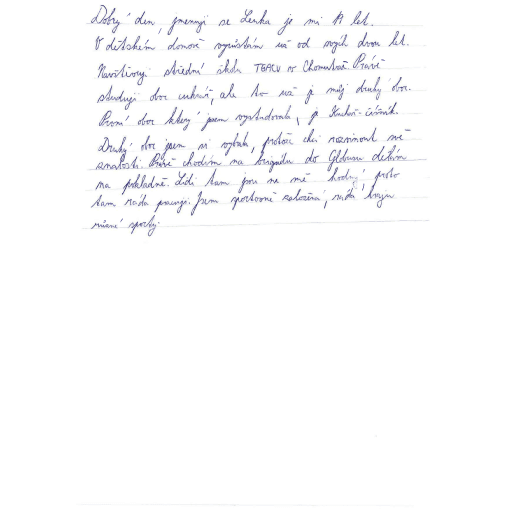 Dobrý den, jmenuji se Lenka je mi let.
V dětském domově vyrůstám už od svých dvou let.
Navštěvuji střední škola TGACV v Chomutově. Právě
studuji obor cukrář, ale to už je můj druhý obor.
První obor který jsem vystudovala, je Kuchař-číšník.
Druhý obor jsem si vybrala, protože chci rozvinout mé
znalosti. Právě chodím na brigádu do Globusu dělám
na pokladně. Lidi tam jsou na mě hodný, proto
tam ráda pracuji. Jsem sportovně založená, ráda hraju
různé sporty.